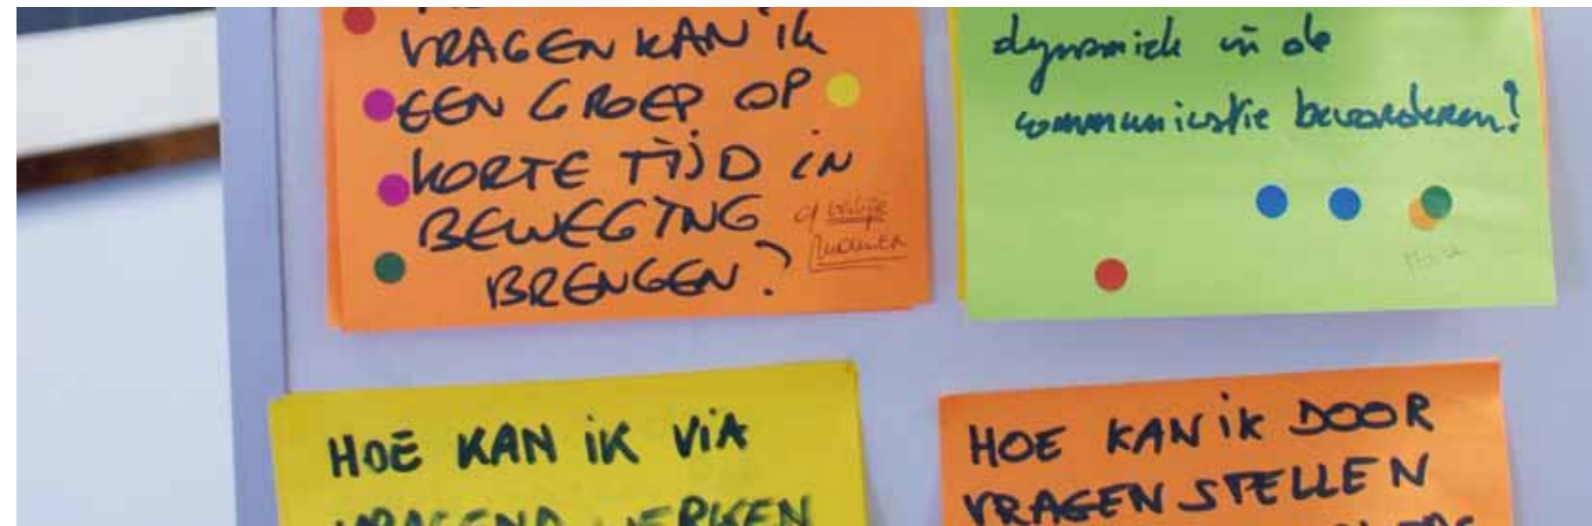 VRAGEN KAN iK
EEN GROEP OP
KORTE TIJD iN
BEWEGING
BRENGEN?
dynamiek in de
communicatie bevorderen?
HOE KAN iK ViA
VRAGEND WERKEN
HOE KAN iK DOOR
VRAGEN STELLEN